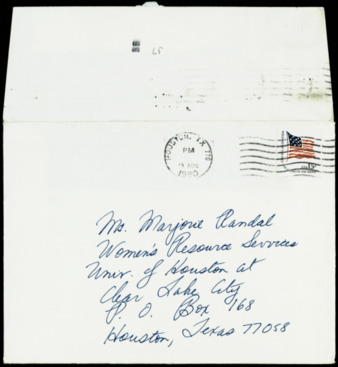 HOUSTON, TX
PM
AUG
1980
Ms. Marjorie Randal
Women's Resource Services
Univ. of Houston at
Clear Lake City
P. O. Box 168
Houston, Texas 77058